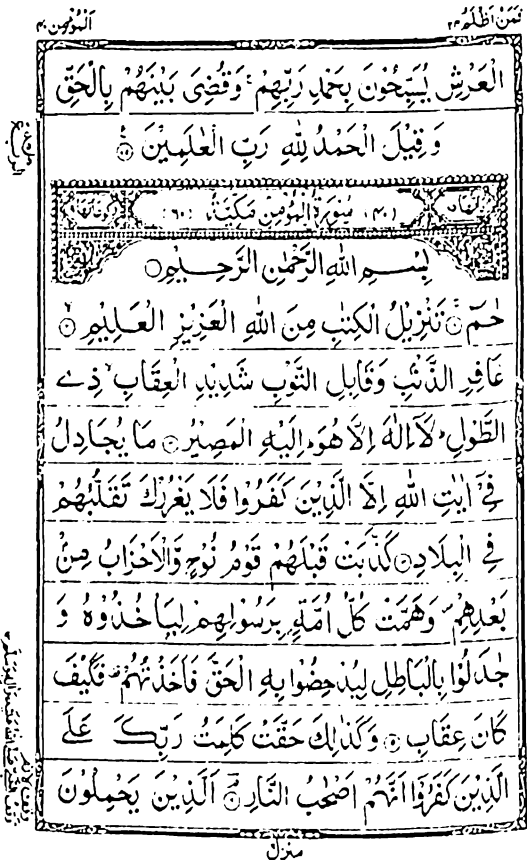 فمن اظلم ٢٤
المؤمن ٤٠
الْعَرْشِ يُسَبِّحُوْنَ بِحَمْدِ رَبِّهِمْ ۚ وَقُضِىَ بَيْنَهُمْ بِالْحَقِّ
وَقِيْلَ الْحَمْدُ لِلّٰهِ رَبِّ الْعٰلَمِيْنَ
(٤٠) سُوْرَةُ الْمُؤْمِنِ مَكِّيَّةٌ (٦٠)
بِسْمِ اللّٰهِ الرَّحْمٰنِ الرَّحِيْمِ
حٰمٓ ۚ تَنْزِيْلُ الْكِتٰبِ مِنَ اللّٰهِ الْعَزِيْزِ الْعَلِيْمِ ۙ
غَافِرِ الذَّنْۢبِ وَقَابِلِ التَّوْبِ شَدِيْدِ الْعِقَابِ ۙ ذِى
الطَّوْلِ ؕ لَاۤ اِلٰهَ اِلَّا هُوَ ؕ اِلَيْهِ الْمَصِيْرُ مَا يُجَادِلُ
فِىْۤ اٰيٰتِ اللّٰهِ اِلَّا الَّذِيْنَ كَفَرُوْا فَلَا يَغْرُرْكَ تَقَلُّبُهُمْ
فِى الْبِلَادِ كَذَّبَتْ قَبْلَهُمْ قَوْمُ نُوْحٍ وَّالْاَحْزَابُ مِنْۢ
بَعْدِهِمْ ۪ وَهَمَّتْ كُلُّ اُمَّةٍۭ بِرَسُوْلِهِمْ لِيَاْخُذُوْهُ وَ
جٰدَلُوْا بِالْبَاطِلِ لِيُدْحِضُوْا بِهِ الْحَقَّ فَاَخَذْتُهُمْ ۫ فَكَيْفَ
كَانَ عِقَابِ وَكَذٰلِكَ حَقَّتْ كَلِمَتُ رَبِّكَ عَلَى
الَّذِيْنَ كَفَرُوْۤا اَنَّهُمْ اَصْحٰبُ النَّارِ ۘ اَلَّذِيْنَ يَحْمِلُوْنَ
منزل